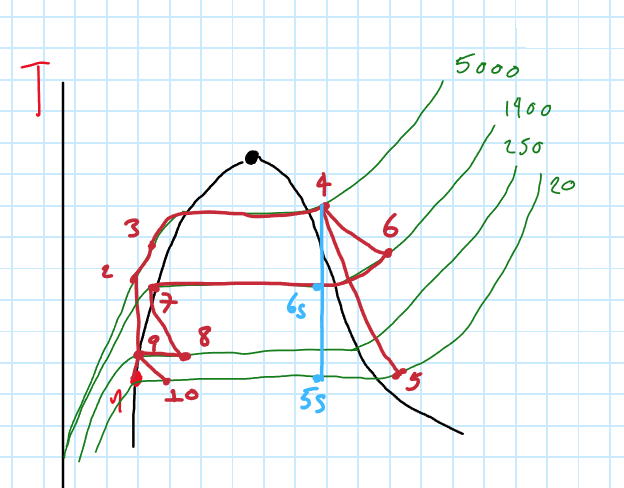 T
5000
1900
250
20
4
3
6
2
7
6s
9
8
1
10
5s
5